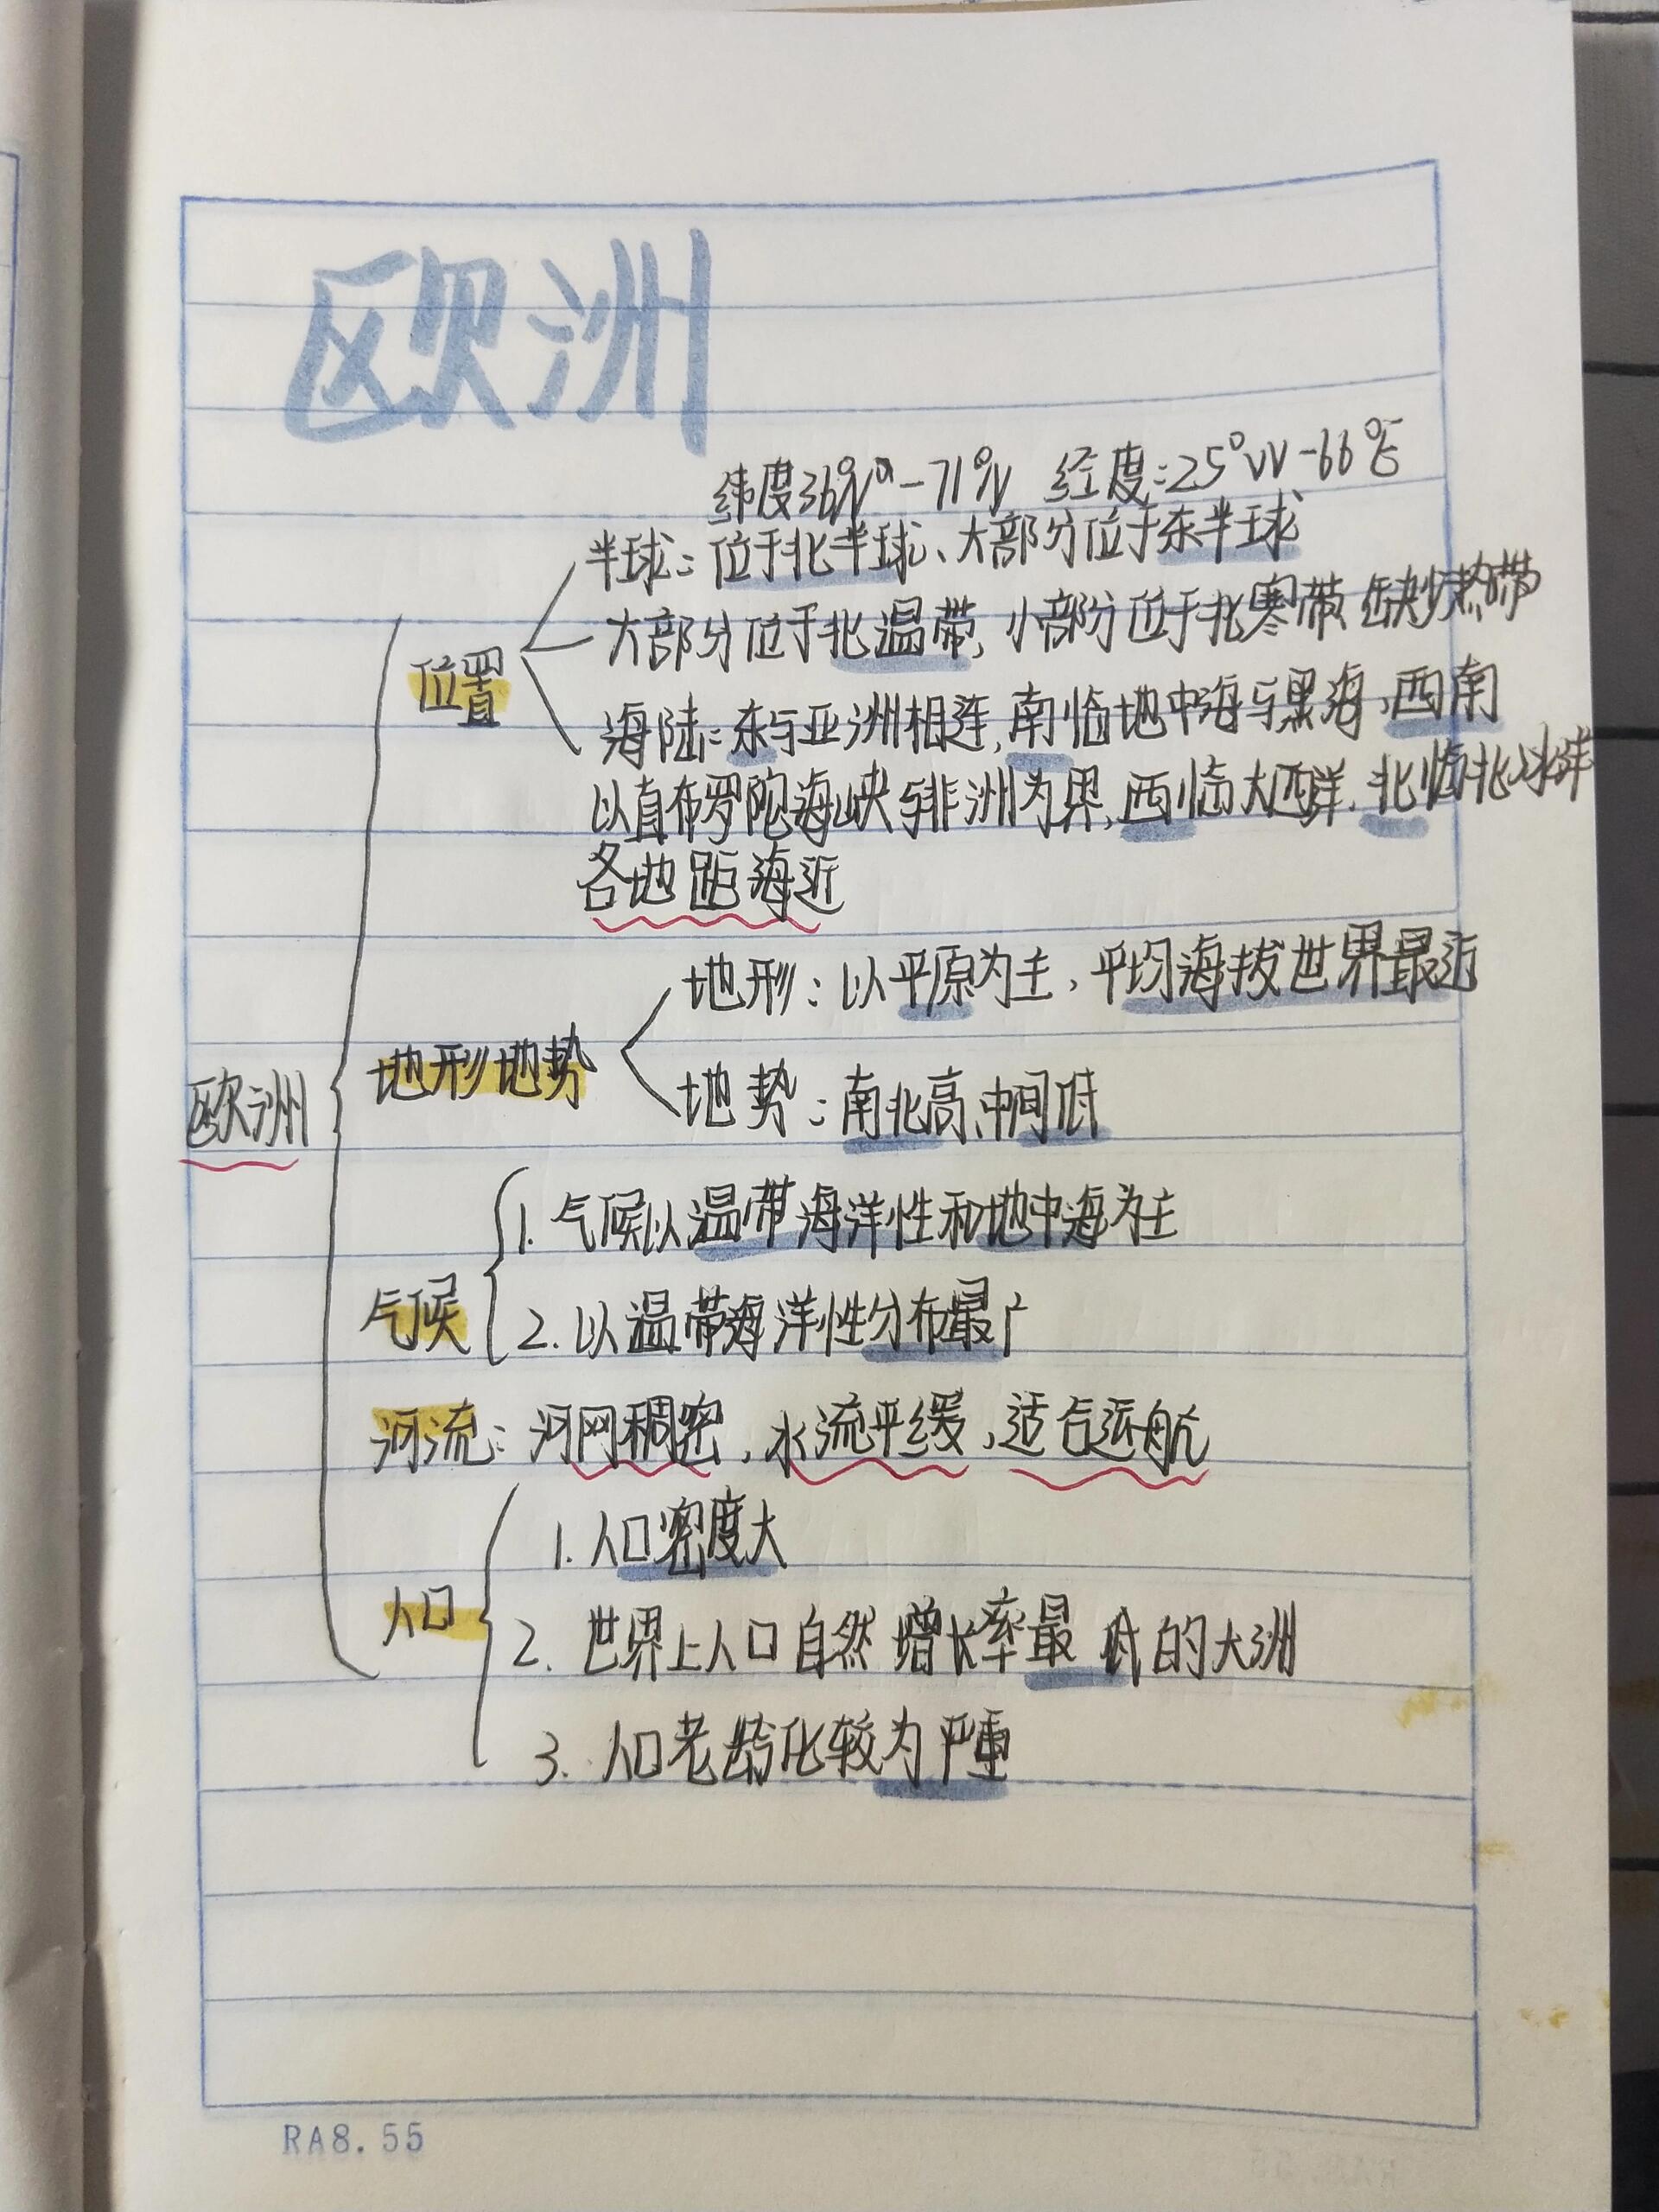 欧洲
纬度36°N-71°N 经度:25°W-66°E
半球:位于北半球、大部分位于东半球
大部分位于北温带,小部分位于北寒带,缺少热带
位置
海陆:东与亚洲相连,南临地中海与黑海,西南
以直布罗陀海峡与非洲为界,西临大西洋,北临北冰洋
各地距海近
地形:以平原为主,平均海拔世界最近
地形地势
地势:南北高、中间低
欧洲
1.气候以温带海洋性和地中海为主
气候
2.以温带海洋性分布最广
河流:河网稠密,水流平缓,适合运航
1.人口密度大
人口
2.世界上人口自然增长率最低的大洲
3.人口老龄化较为严重
RA8.55